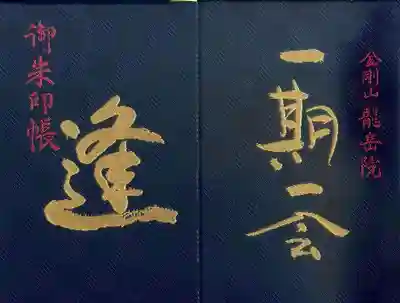 御朱印帳
逢
金剛山 龍岳院
一期一会